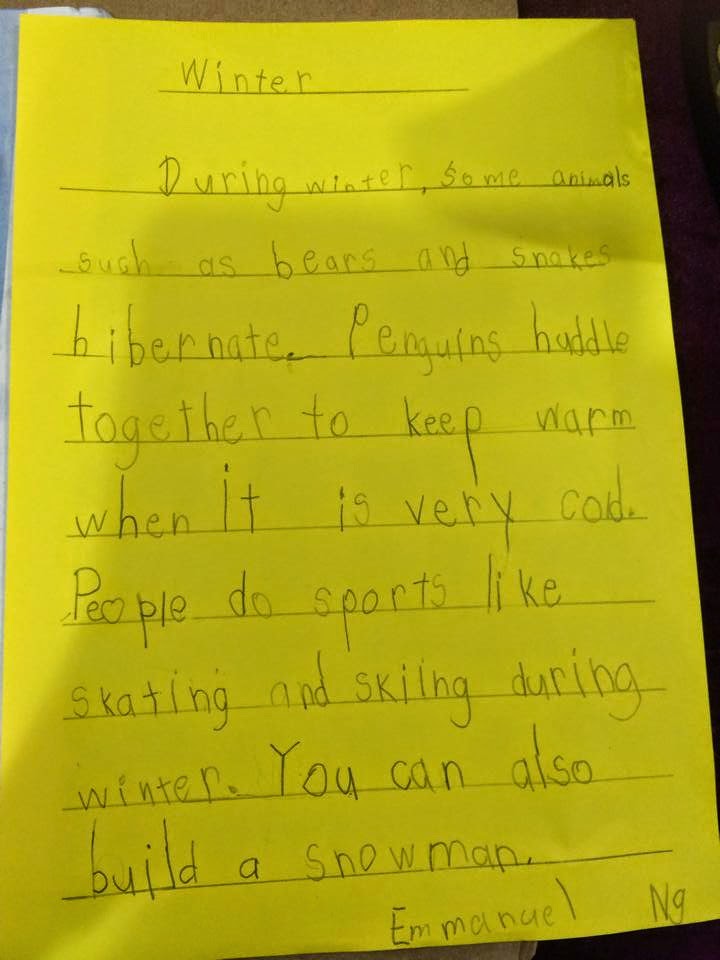 Winter
During winter, some animals
such as bears and snakes
hibernate. Penguins huddle
together to keep warm
when it is very cold.
People do sports like
skating and skiing during
winter. You can also
build a snowman.
Emmanuel Ng